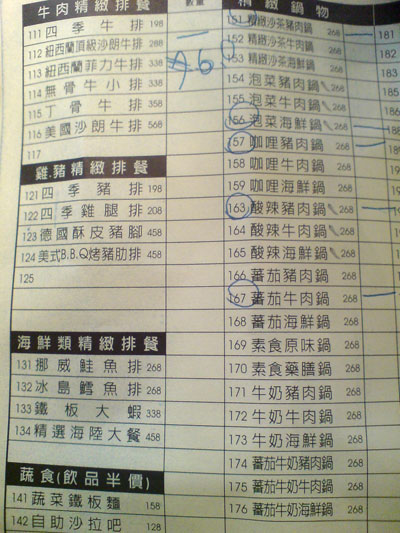 牛肉精緻排餐 數量
111 四季牛排 198
112 紐西蘭頂級沙朗牛排 288
113 紐西蘭菲力牛排 338
114 無骨牛小排 358
115 丁骨牛排 358
116 美國沙朗牛排 568
117
雞.豬精緻排餐
121 四季豬排 198
122 四季雞腿排 208
123 德國酥皮豬腳 458
124 美式B.B.Q烤豬肋排 458
125
海鮮類精緻排餐
131 挪威鮭魚排 268
132 冰島鱈魚排 268
133 鐵板大蝦 338
134 精選海陸大餐 458
蔬食(飲品半價)
141 蔬菜鐵板麵 158
142 自助沙拉吧 128
精緻鍋物
151 精緻沙茶豬肉鍋 268
152 精緻沙茶牛肉鍋 268
153 精緻沙茶海鮮鍋 268
154 泡菜豬肉鍋 268
155 泡菜牛肉鍋 268
156 泡菜海鮮鍋 268
157 咖哩豬肉鍋 268
158 咖哩牛肉鍋 268
159 咖哩海鮮鍋 268
163 酸辣豬肉鍋 268
164 酸辣牛肉鍋 268
165 酸辣海鮮鍋 268
166 蕃茄豬肉鍋 268
167 蕃茄牛肉鍋 268
168 蕃茄海鮮鍋 268
169 素食原味鍋 268
170 素食藥膳鍋 268
171 牛奶豬肉鍋 268
172 牛奶牛肉鍋 268
173 牛奶海鮮鍋 268
174 蕃茄牛奶豬肉鍋 268
175 蕃茄牛奶牛肉鍋 268
176 蕃茄牛奶海鮮鍋 268
181
182
183
184
185
186
187
188